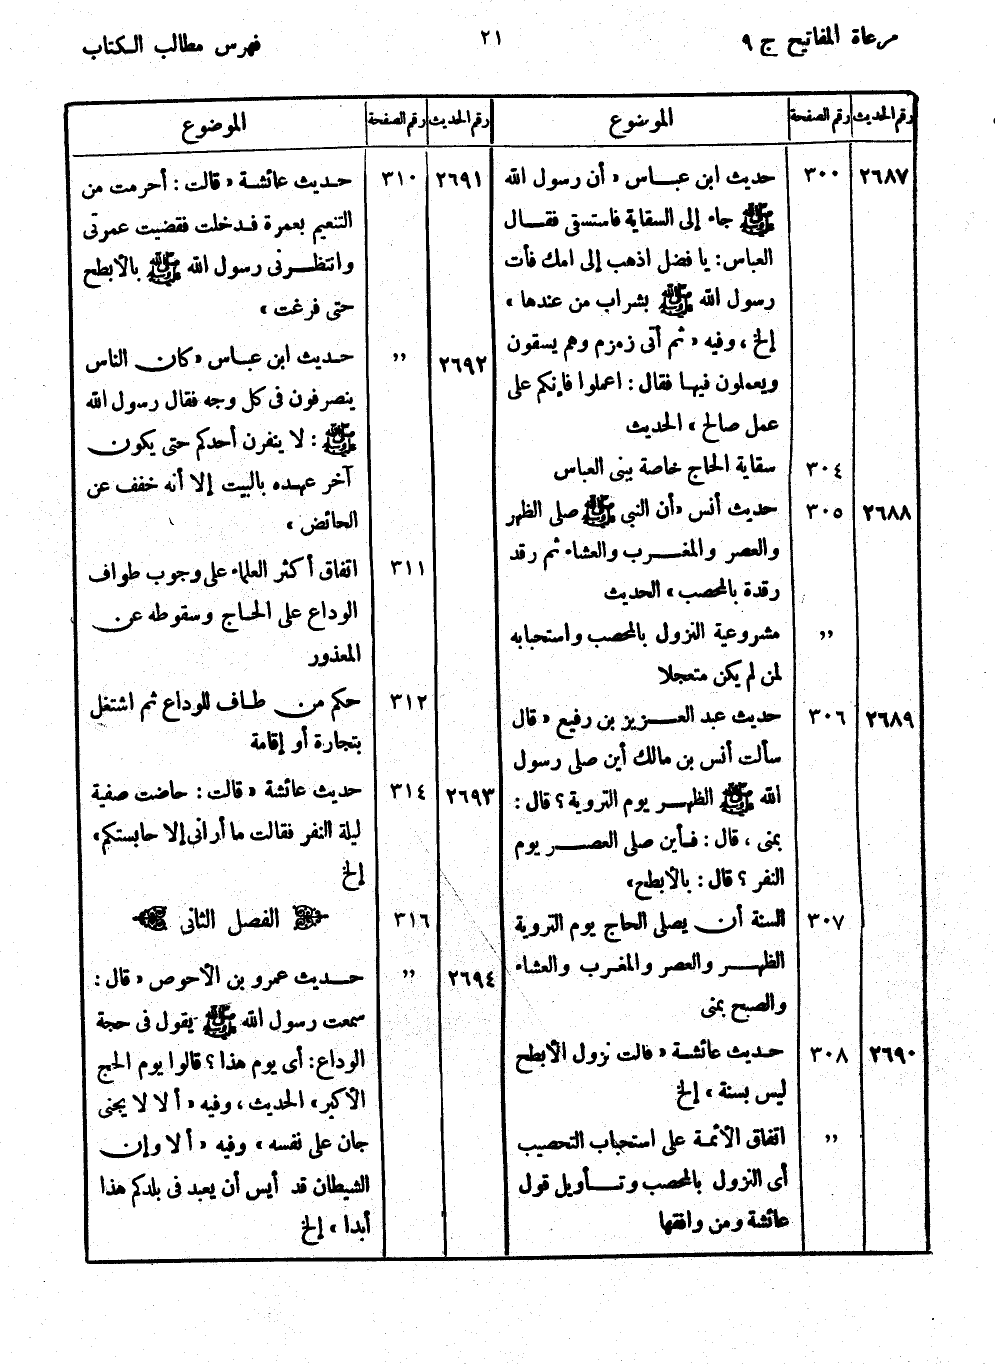 مرعاة المفاتيح ج ٩
٢١
فهرس مطالب الكتاب
رقم الحديث رقم الصفحة الموضوع
٢٦٨٧ ٣٠٠ حديث ابن عباس « أن رسول الله
ﷺ جاء إلى السقاية فاستسقى فقال
العباس: يا فضل اذهب إلى امك فأت
رسول الله ﷺ بشراب من عندها »
إلخ ، وفيه « ثم أتى زمزم وهم يسقون
ويعملون فيها فقال : اعملوا فإنكم على
عمل صالح » الحديث
٣٠٤ سقاية الحاج خاصة ببنى العباس
٢٦٨٨ ٣٠٥ حديث أنس «أن النبى ﷺ صلى الظهر
والعصر والمغرب والعشاء ثم رقد
رقدة بالمحصب» الحديث
,, مشروعية النزول بالمحصب واستحبابه
لمن لم يكن متعجلا
٢٦٨٩ ٣٠٦ حديث عبد العزيز بن رفيع « قال
سألت أنس بن مالك أين صلى رسول
الله ﷺ الظهر يوم التروية ؟ قال :
بمنى ، قال : فأين صلى العصر يوم
النفر ؟ قال : بالأبطح»
٣٠٧ السنة أن يصلى الحاج يوم التروية
الظهر والعصر والمغرب والعشاء
والصبح بمنى
٢٦٩٠ ٣٠٨ حديث عائشة « قالت نزول الأبطح
ليس بسنة » إلخ
,, اتفاق الأئمة على استحباب التحصيب
أى النزول بالمحصب وتأويل قول
عائشة ومن وافقها
رقم الحديث رقم الصفحة الموضوع
٢٦٩١ ٣١٠ حديث عائشة « قالت : أحرمت من
التنعيم بعمرة فدخلت فقضيت عمرتى
وانتظرنى رسول الله ﷺ بالأبطح
حتى فرغت »
٢٦٩٢ ,, حديث ابن عباس «كان الناس
ينصرفون فى كل وجه فقال رسول الله
ﷺ : لا ينفرن أحدكم حتى يكون
آخر عهده بالبيت إلا أنه خفف عن
الحائض »
٣١١ اتفاق أكثر العلماء على وجوب طواف
الوداع على الحاج وسقوطه عن
المعذور
٣١٢ حكم من طاف للوداع ثم اشتغل
بتجارة أو إقامة
٢٦٩٣ ٣١٤ حديث عائشة « قالت : حاضت صفية
ليلة النفر فقالت ما أرانى إلا حابستكم»
إلخ
٣١٦ الفصل الثانى
٢٦٩٤ ,, حديث عمرو بن الأحوص « قال :
سمعت رسول الله ﷺ يقول فى حجة
الوداع: أى يوم هذا ؟ قالوا يوم الحج
الأكبر» الحديث ، وفيه « ألا لا يجنى
جان على نفسه » وفيه « ألا وإن
الشيطان قد أيس أن يعبد فى بلدكم هذا
أبدا » إلخ